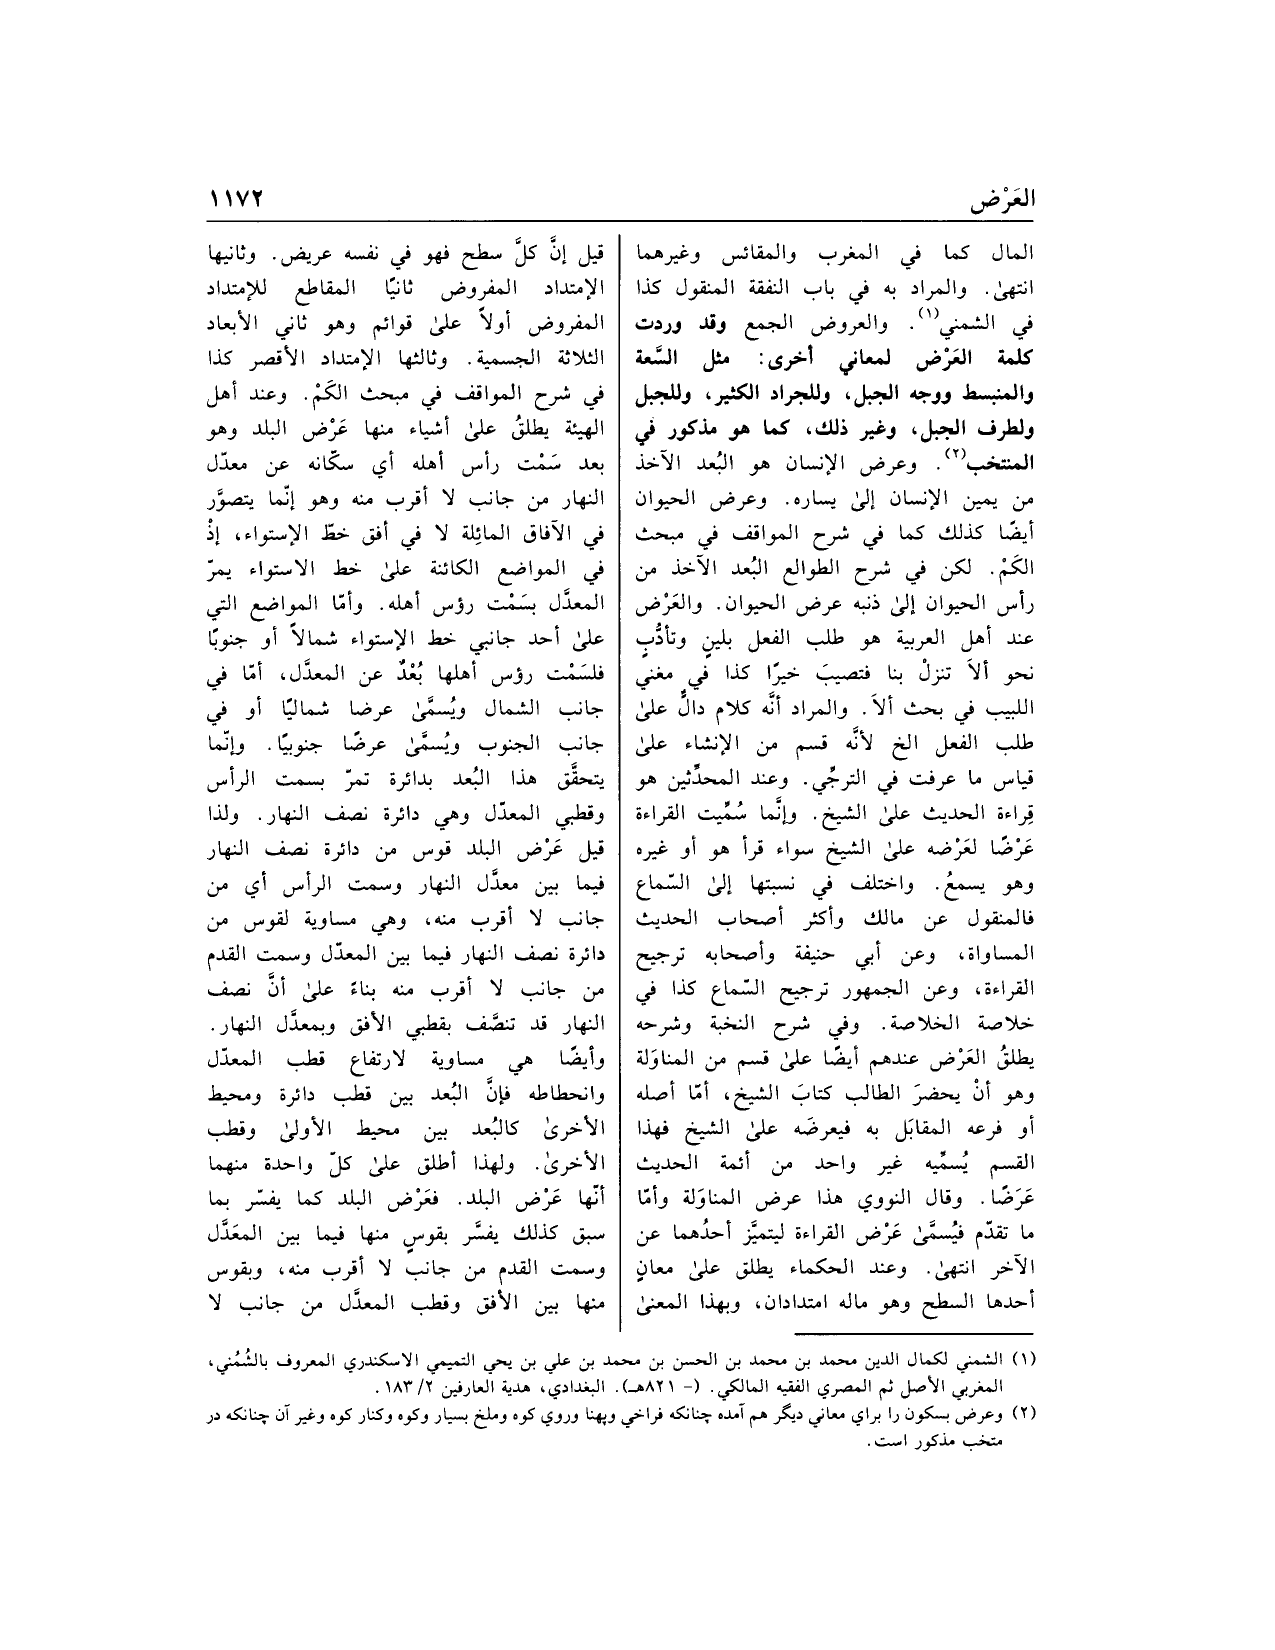 العَرْض
١١٧٢
المال كما في المغرب والمقائس وغيرهما
انتهىٰ. والمراد به في باب النفقة المنقول كذا
في الشمني(١). والعروض الجمع وقد وردت
كلمة العَرْض لمعاني أخرى: مثل السَّعة
والمنبسط ووجه الجبل، وللجراد الكثير، وللجبل
ولطرف الجبل، وغير ذلك، كما هو مذكور في
المنتخب(٢). وعرض الإنسان هو البُعد الآخذ
من يمين الإنسان إلىٰ يساره. وعرض الحيوان
أيضًا كذلك كما في شرح المواقف في مبحث
الكَمْ. لكن في شرح الطوالع البُعد الآخذ من
رأس الحيوان إلىٰ ذنبه عرض الحيوان. والعَرْض
عند أهل العربية هو طلب الفعل بلينٍ وتأدُّبٍ
نحو ألاَ تنزلْ بنا فتصيبَ خيرًا كذا في مغني
اللبيب في بحث ألاَ. والمراد أنَّه كلام دالٌّ علىٰ
طلب الفعل الخ لأنَّه قسم من الإنشاء علىٰ
قياس ما عرفت في الترجِّي. وعند المحدِّثين هو
قِراءة الحديث علىٰ الشيخ. وإنَّما سُمِّيت القراءة
عَرْضًا لعَرْضه علىٰ الشيخ سواء قرأ هو أو غيره
وهو يسمعُ. واختلف في نسبتها إلىٰ السّماع
فالمنقول عن مالك وأكثر أصحاب الحديث
المساواة، وعن أبي حنيفة وأصحابه ترجيح
القراءة، وعن الجمهور ترجيح السّماع كذا في
خلاصة الخلاصة. وفي شرح النخبة وشرحه
يطلقُ العَرْض عندهم أيضًا علىٰ قسم من المناوَلة
وهو أنْ يحضرَ الطالب كتابَ الشيخ، أمّا أصله
أو فرعه المقابَل به فيعرضَه علىٰ الشيخ فهذا
القسم يُسمِّيه غير واحد من أئمة الحديث
عَرَضًا. وقال النووي هذا عرض المناوَلة وأمّا
ما تقدّم فيُسمَّىٰ عَرْض القراءة ليتميَّز أحدُهما عن
الآخر انتهىٰ. وعند الحكماء يطلق علىٰ معانٍ
أحدها السطح وهو ماله امتدادان، وبهذا المعنىٰ
قيل إنَّ كلَّ سطح فهو في نفسه عريض. وثانيها
الإمتداد المفروض ثانيًا المقاطع للإمتداد
المفروض أولاً علىٰ قوائم وهو ثاني الأبعاد
الثلاثة الجسمية. وثالثها الإمتداد الأقصر كذا
في شرح المواقف في مبحث الكَمْ. وعند أهل
الهيئة يطلقُ علىٰ أشياء منها عَرْض البلد وهو
بعد سَمْت رأس أهله أي سكّانه عن معدّل
النهار من جانب لا أقرب منه وهو إنّما يتصوَّر
في الآفاق المائِلة لا في أفق خطّ الإستواء، إذْ
في المواضع الكائنة علىٰ خط الاستواء يمرّ
المعدَّل بسَمْت رؤس أهله. وأمّا المواضع التي
علىٰ أحد جانبي خط الإستواء شمالاً أو جنوبًا
فلسَمْت رؤس أهلها بُعْدٌ عن المعدَّل، أمّا في
جانب الشمال ويُسمَّىٰ عرضا شماليًا أو في
جانب الجنوب ويُسمَّىٰ عرضًا جنوبيًا. وإنّما
يتحقَّق هذا البُعد بدائرة تمرّ بسمت الرأس
وقطبي المعدّل وهي دائرة نصف النهار. ولذا
قيل عَرْض البلد قوس من دائرة نصف النهار
فيما بين معدَّل النهار وسمت الرأس أي من
جانب لا أقرب منه، وهي مساوية لقوس من
دائرة نصف النهار فيما بين المعدّل وسمت القدم
من جانب لا أقرب منه بناءً علىٰ أنَّ نصف
النهار قد تنصَّف بقطبي الأفق وبمعدَّل النهار.
وأيضًا هي مساوية لارتفاع قطب المعدّل
وانحطاطه فإنَّ البُعد بين قطب دائرة ومحيط
الأخرىٰ كالبُعد بين محيط الأولىٰ وقطب
الأخرىٰ. ولهذا أطلق علىٰ كلّ واحدة منهما
أنّها عَرْض البلد. فعَرْض البلد كما يفسّر بما
سبق كذلك يفسَّر بقوسٍ منها فيما بين المعَدَّل
وسمت القدم من جانب لا أقرب منه، وبقوس
منها بين الأفق وقطب المعدَّل من جانب لا
(١) الشمني لكمال الدين محمد بن محمد بن الحسن بن محمد بن علي بن يحي التميمي الاسكندري المعروف بالشُمُني،
المغربي الأصل ثم المصري الفقيه المالكي. (- ٨٢١هـ). البغدادي، هدية العارفين ٢/ ١٨٣.
(٢) وعرض بسكون را براي معاني ديگر هم آمده چنانكه فراخي وپهنا وروي كوه وملخ بسيار وكوه وكنار كوه وغير آن چنانكه در
متخب مذكور است.